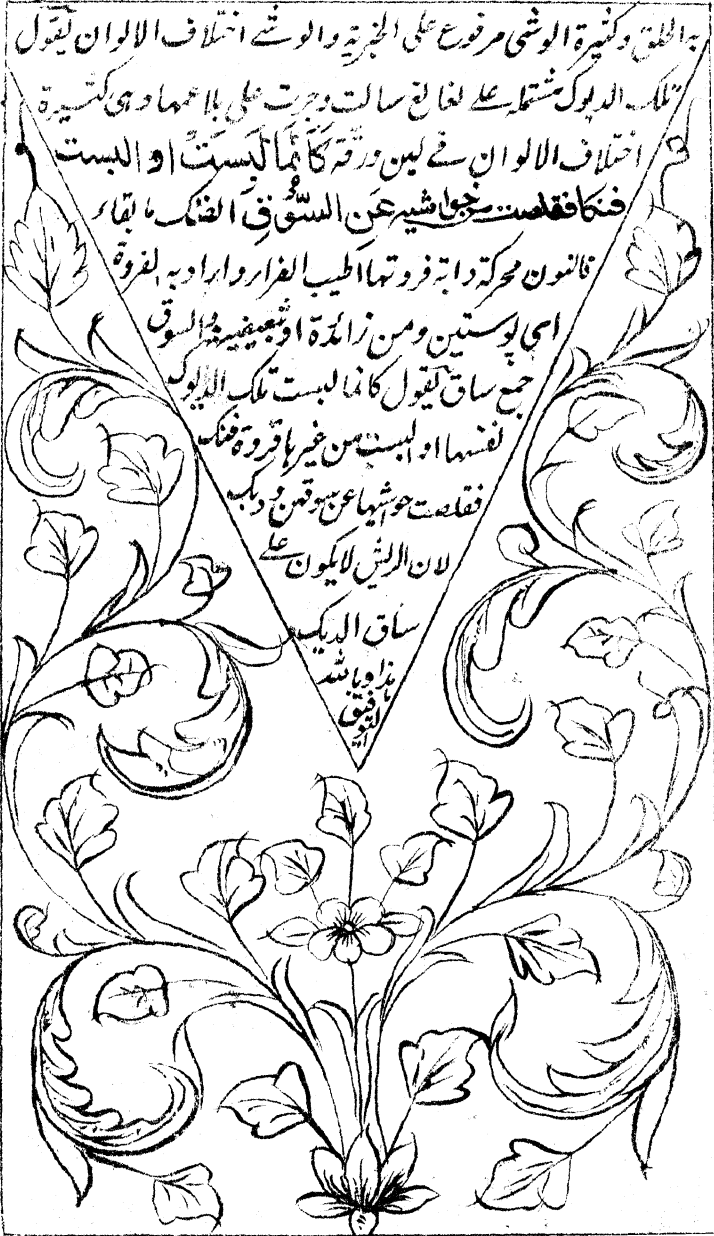 به الحلق وكثيرة الوشي مرفوع على الخبرية والوشے اختلاف الالوان يقول
تلك الديوك مشتملة علے لغالغ سالت وجرت على بلاعمها وهى كثيرة
اختلاف الالوان فے لين ورقة كَاَنَّمَا لَبِسَتْ او البست
فنكا فقلصت من حواشيه عَنِ السُّوْقِ الفنك بالفاء
فالنون محركة دابة فروتها اطيب الفراء واراد به الفروة
اى پوستين ومن زائدة او تبعيضية والسوق
جمع ساق يقول كانما لبست تلك الديوك
نفسها او البست من غيرها فروة فنك
فقلصت حواشيها عن سوقهن وذلك
لان الريش لا يكون علے
ساق الديك
هذا وبالله
التوفيق